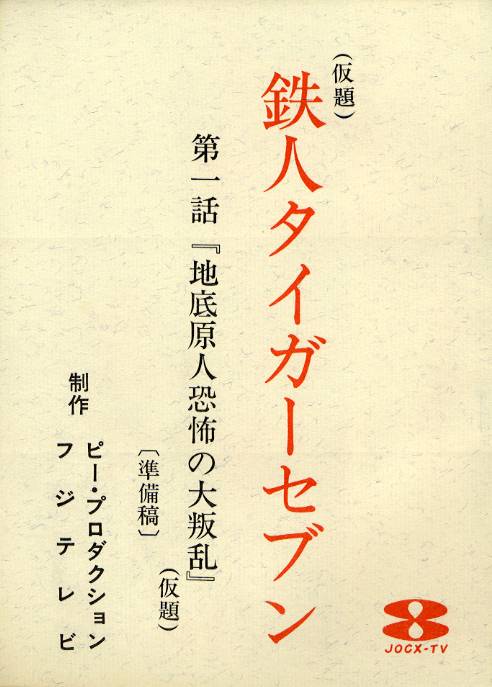 (仮題)
鉄人タイガーセブン
第一話『地底原人恐怖の大叛乱』
(仮題)
〔準備稿〕
制作
ピー・プロダクション
フジテレビ
8
JOCX-TV